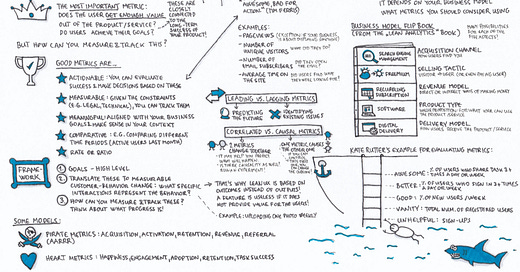 THE MOST IMPORTANT METRIC:
DOES THE USER GET ENOUGH VALUE
OUT OF THE PRODUCT/SERVICE?
DO USERS ACHIEVE THEIR GOALS?
THESE ARE
CLOSELY
CONNECTED
TO THE
LONG-TERM
SUCCESS OF
YOUR PRODUCT!
BUT HOW CAN YOU MEASURE & TRACK THIS?
GOOD METRICS ARE...
ACTIONABLE: YOU CAN EVALUATE
SUCCESS & MAKE DECISIONS BASED ON THESE
MEASURABLE: GIVEN THE CONSTRAINTS
(E.G. LEGAL, TECHNICAL), YOU CAN TRACK THEM
MEANINGFUL: ALIGNED WITH YOUR BUSINESS
GOALS & MAKE SENSE IN YOUR CONTEXT
COMPARATIVE: E.G. COMPARING DIFFERENT
TIME PERIODS (ACTIVE USERS LAST MONTH)
RATE OR RATIO
FRAME-
WORK
1 GOALS - HIGH LEVEL
2 TRANSLATE THESE TO MEASURABLE
CUSTOMER-BEHAVIOR CHANGES: WHAT SPECIFIC
INTERACTIONS REPRESENT THE BEHAVIOR?
3 HOW CAN YOU MEASURE & TRACK THESE?
THINK ABOUT WHAT PROGRESS IS!
SOME MODELS:
PIRATE METRICS: ACQUISITION, ACTIVATION, RETENTION, REVENUE, REFERRAL
(AARRR)
HEART METRICS: HAPPINESS, ENGAGEMENT, ADOPTION, RETENTION, TASK SUCCESS
AWESOME, BAD FOR
ACTION" (TIM FERRIS)
EXAMPLES:
- PAGEVIEWS
- NUMBER OF
UNIQUE VISITORS
WHAT DO THEY DO?
- NUMBER OF
EMAIL SUBSCRIBERS
- AVERAGE TIME ON
THE SITE
LEADING VS. LAGGING METRICS
PREDICTING
THE FUTURE
IDENTIFY
EXISTING ISSUES!
CORRELATED VS. CAUSAL METRICS
2 METRICS
CHANGE TOGETHER
ONE METRIC CAUSES
THE OTHER ONE
THAT'S WHY LEANUX IS BASED ON
OUTCOMES INSTEAD OF OUTPUTS!
A FEATURE IS USELESS IF IT DOES
NOT PROVIDE VALUE FOR THE USERS!
EXAMPLE: UPLOADING ONE PHOTO WEEKLY
IT DEPENDS ON YOUR BUSINESS MODEL
WHAT METRICS YOU SHOULD CONSIDER USING
BUSINESS MODEL FLIP BOOK
(FROM THE "LEAN ANALYTICS" BOOK)
MANY POSSIBILITIES
FOR EACH OF THE
SIX ASPECTS!
SEARCH ENGINE
MANAGEMENT
ACQUISITION CHANNEL
HOW USERS FIND YOU
FREEMIUM
SELLING TACTIC
RECURRING
SUBSCRIPTION
REVENUE MODEL
DIRECT OR INDIRECT WAYS OF MAKING MONEY
SOFTWARE
PRODUCT TYPE
DIGITAL
DELIVERY
DELIVERY MODEL
HOW USERS RECEIVE THE PRODUCT/SERVICE
KATE RUTTER'S EXAMPLE FOR EVALUATING METRICS:
AWESOME:
% OF USERS WHO SHARE TASK 3X
A DAY OR WEEK
BETTER:
% OF USERS WHO SIGN IN 3X
A DAY OR WEEK
GOOD: % OF NEW USERS/WEEK
VANITY: TOTAL NUM. OF REGISTERED USERS
UNHELPFUL: SIGN-UPS